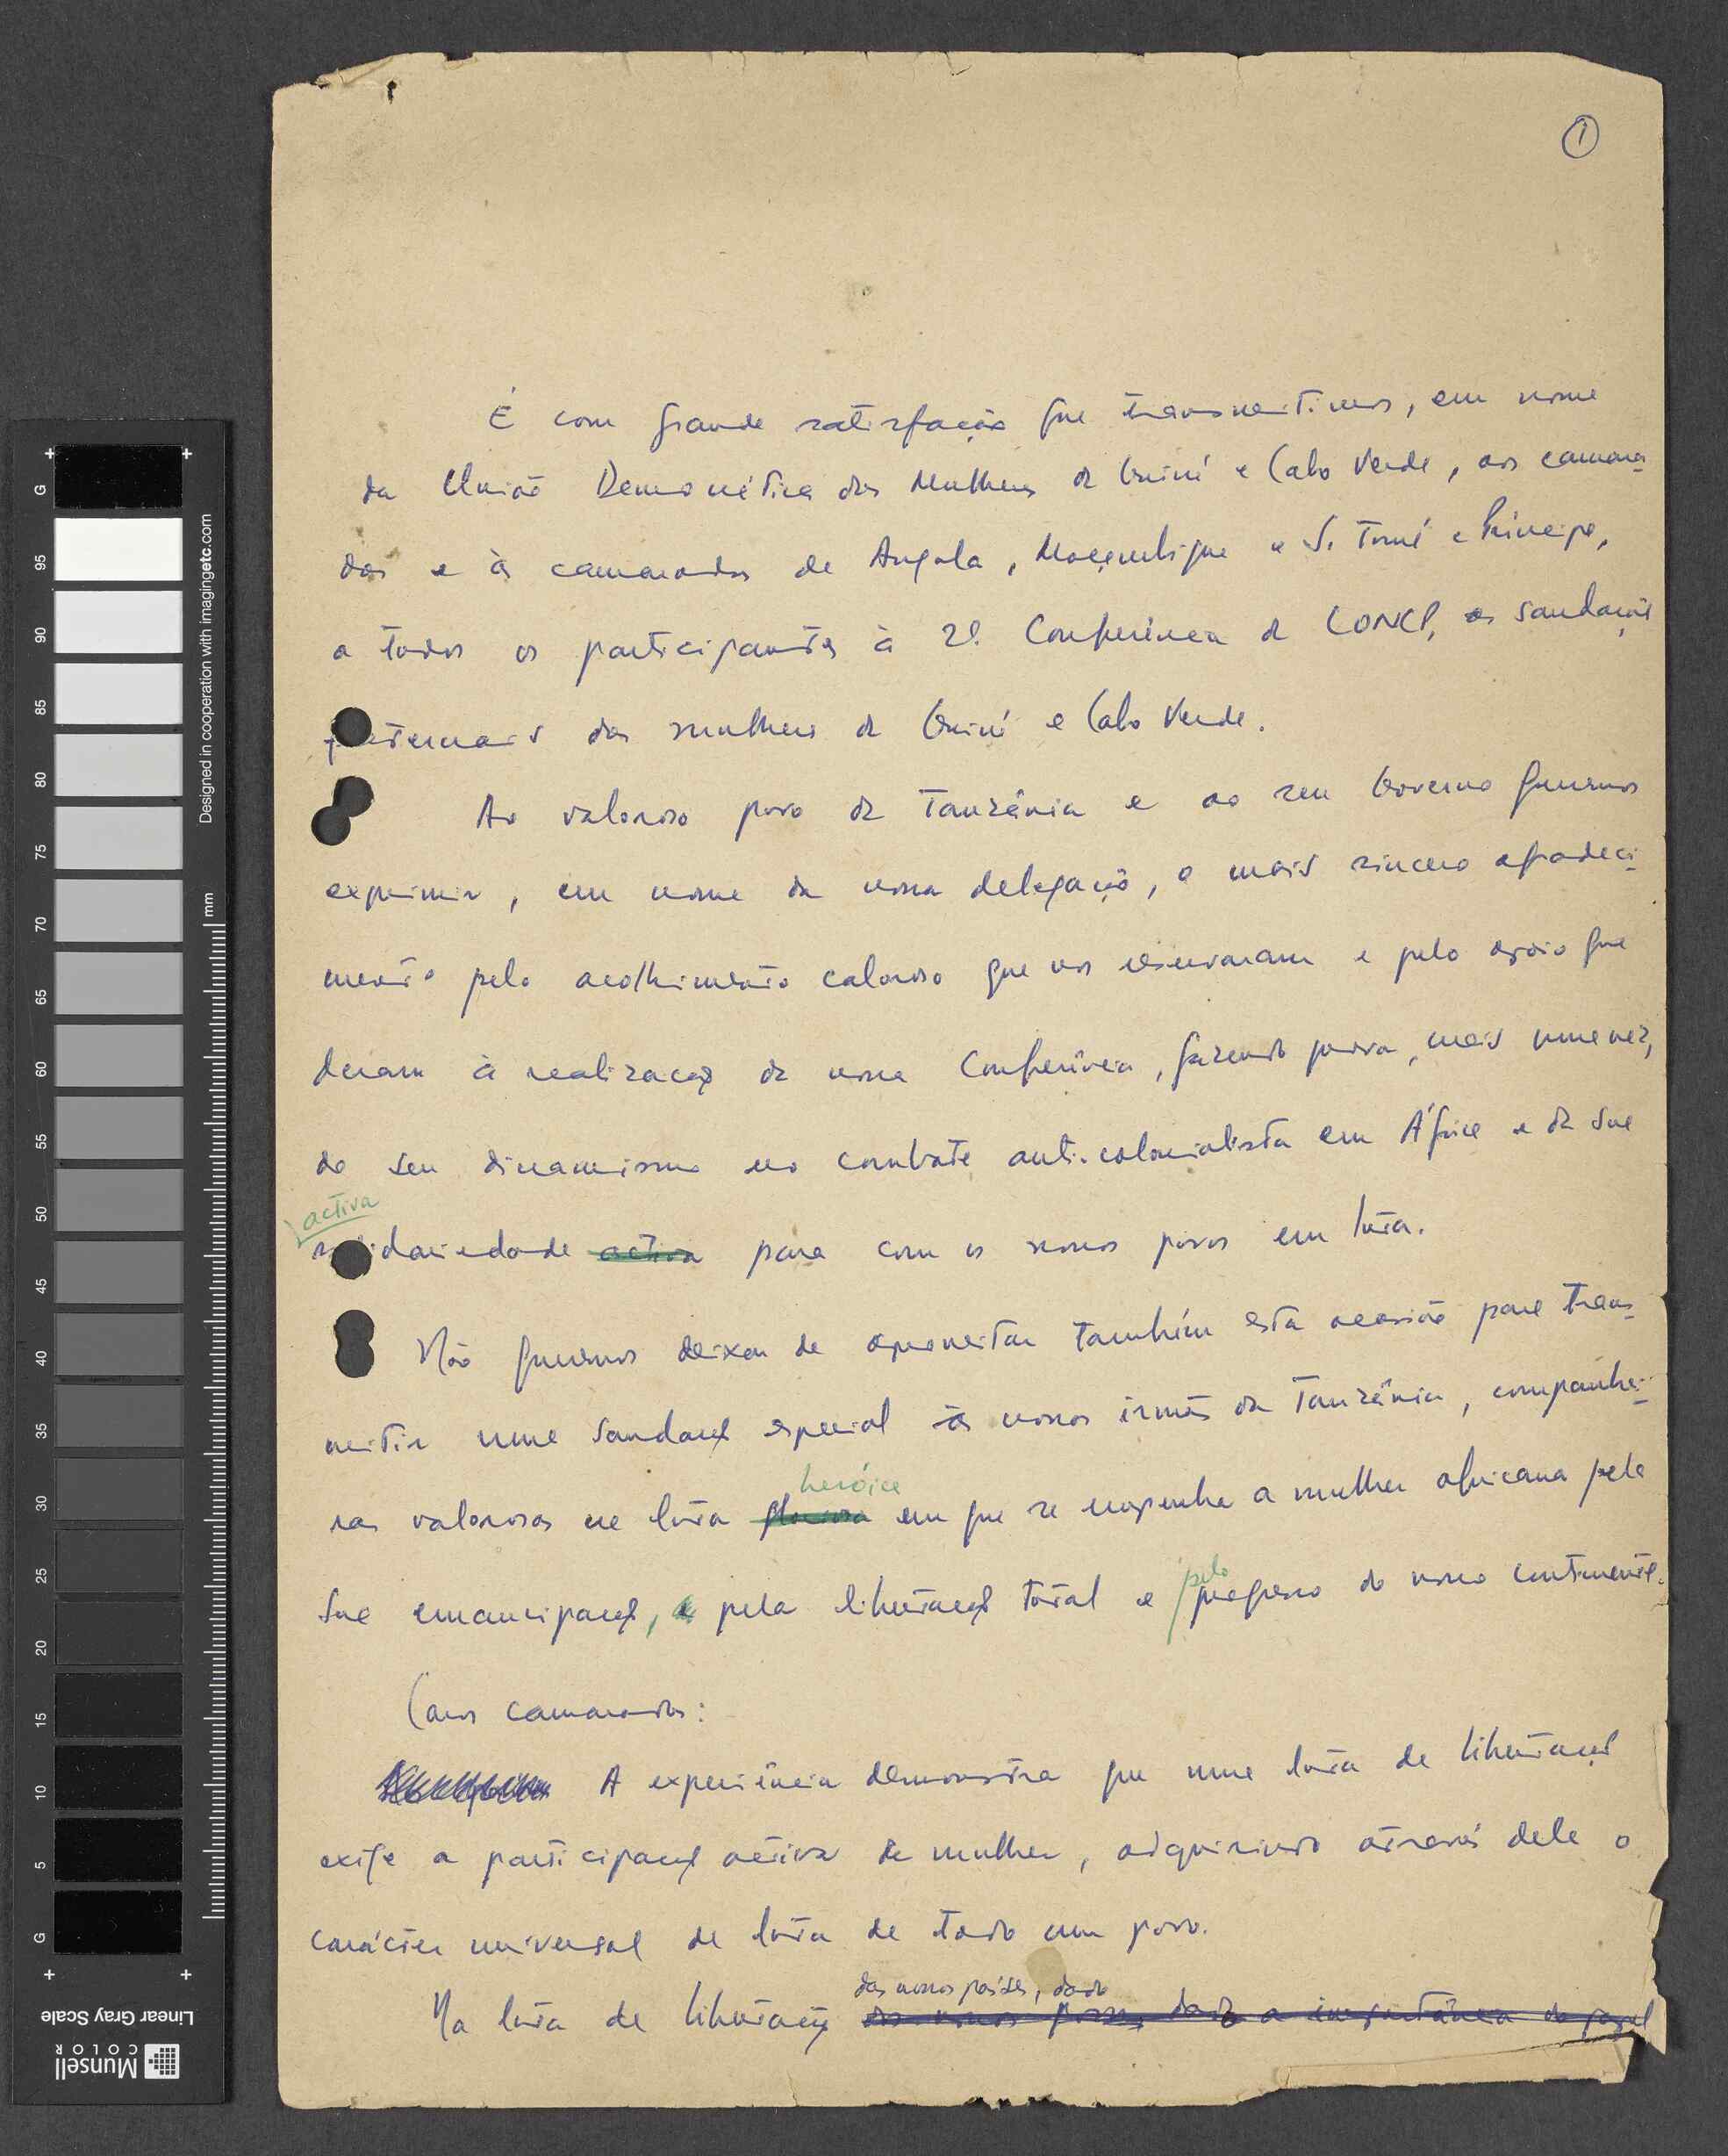 1
É com grande satisfação que transmitimos, em nome
da União Democrática das Mulheres da Guiné e Cabo Verde, aos camara-
das e às camaradas de Angola, Moçambique e S. Tomé e Príncipe,
a todos os participantes à 2ª Conferência da CONCP, as saudações
fraternais das mulheres da Guiné e Cabo Verde.
Ao valoroso povo da Tanzânia e ao seu Governo queremos
exprimir, em nome da nossa delegação, o mais sincero agradeci-
mento pelo acolhimento caloroso que nos reservaram e pelo apoio que
deram à realização da nossa Conferência, fazendo prova, mais uma vez,
do seu dinamismo no combate anti-colonialista em África e da sua
activa
solidariedade activa para com os nossos povos em luta.
Não queremos deixar de aproveitar também esta ocasião para trans-
mitir uma saudação especial às nossas irmãs da Tanzânia, companhei-
heróica
ras valorosas na luta gloriosa em que se empenha a mulher africana pela
pelo
sua emancipação, e pela libertação total e progresso do nosso continente.
Caros camaradas:
A experiência demonstra que uma luta de libertação
exige a participação activa da mulher, adquirindo através dela o
carácter universal de luta de todo um povo.
dos nossos países, dado
Na luta de libertação dos nossos povos, dada a importância do papel
G
95
90
85
80
75
70
65
60
55
50
45
40
35
30
25
20
15
10
5
G
mm
Designed in cooperation with imagingetc.com
Linear Gray Scale
Munsell
COLOR